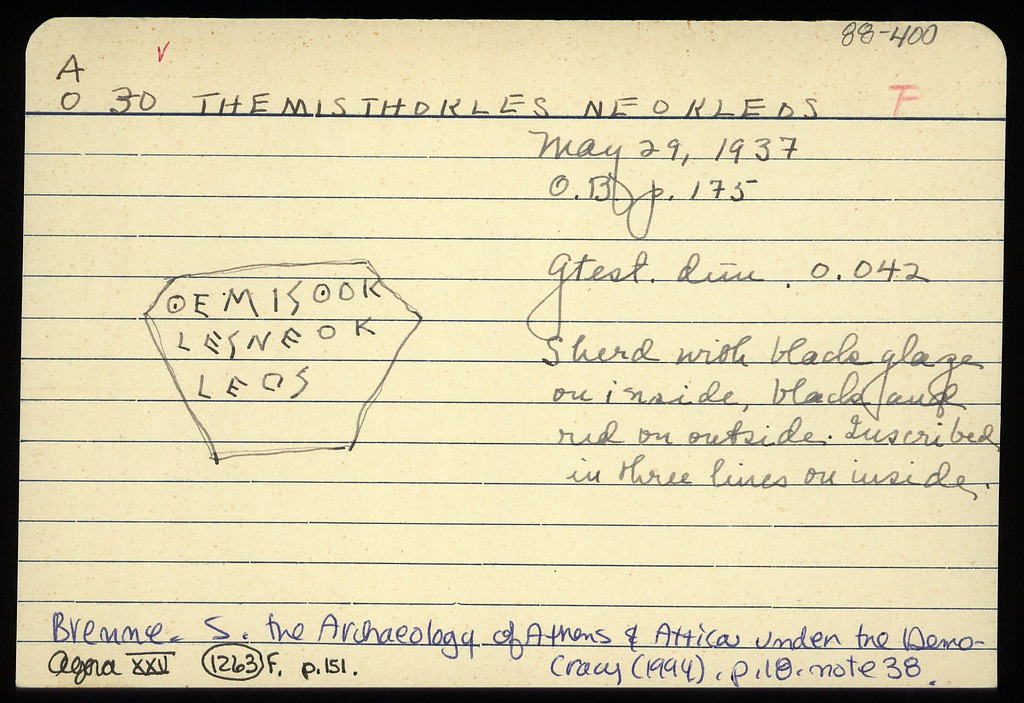 88-400
A
O 30 THEMISTHOKLES NEOKLEOS F
May 29, 1937
O.B p. 175
Gtest. dim. 0.042
ΘEMISΘOK
LESNEOK
LEOS
Sherd with black glaze
on inside, black and
red on outside. Inscribed
in three lines on inside.
Brenne. S. the Archaeology of Athens & Attica under the Demo-
cracy (1994). p.18. note 38.
Agora XXV (1263) F. p.151.